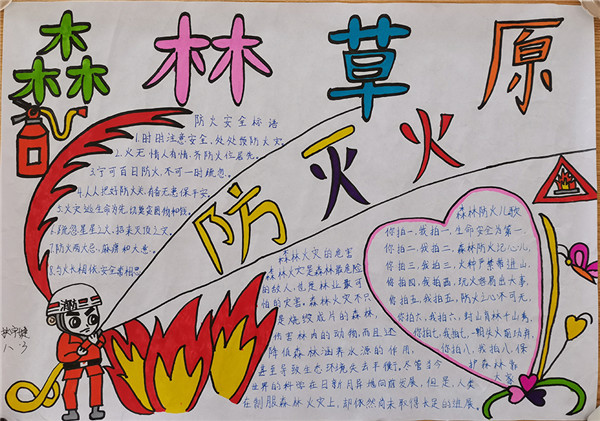 森林草原
防灭火
防火安全标语
1.时时注意安全,处处预防火灾。
2.火无情人有情,齐防火位居先。
3.宁可百日防火,不可一时疏忽。
4.人人把好防火关,有备无患保平安。
5.火灾逃生命为先,切莫贪图物和钱。
6.疏忽星星之火,招来灭顶之灾。
7.防火两大忌,麻痹和大意。
森林火灾的危害
森林火灾是森林最危险
的敌人,也是林业最可
怕的灾害。森林火灾不只
是烧毁成片的森林,
伤害林内的动物,而且还
降低森林涵养水源的作用,
甚至导致生态环境失去平衡。不管当今
世界的科学在日新月异地向前发展,但是,人类
在制服森林火灾上,却依然尚未取得长足的进展。
森林防火儿歌
你拍一,我拍一,生命安全为第一,
你拍二,我拍二,森林防火记心儿,
你拍三,我拍三,火种严禁带进山,
你拍四,我拍四,玩火容易出大事,
你拍五,我拍五,防火之心不可无,
你拍六,我拍六,封山育林十山秀,
你拍七,我拍七,
你拍八,我拍八,保
护森林靠
大家
八.3